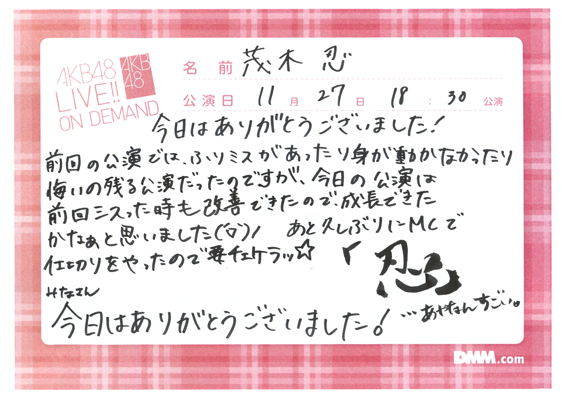 AKB48
LIVE!!
ON DEMAND
AKB
48
名前 茂木 忍
公演日 11月27日 18:30公演
今日はありがとうございました!
前回の公演では、ふりミスがあったり身が動かなかったり
悔いの残る公演だったのですが、今日の公演は
前回ミスった時も改善できたので、成長できた
かなぁと思いました(°▽°)! あと久しぶりにMCで
仕切りをやったので要チェケラッ☆ 「忍」
みなさん
今日はありがとうございました!
…あやなんすごい。
DMM.com